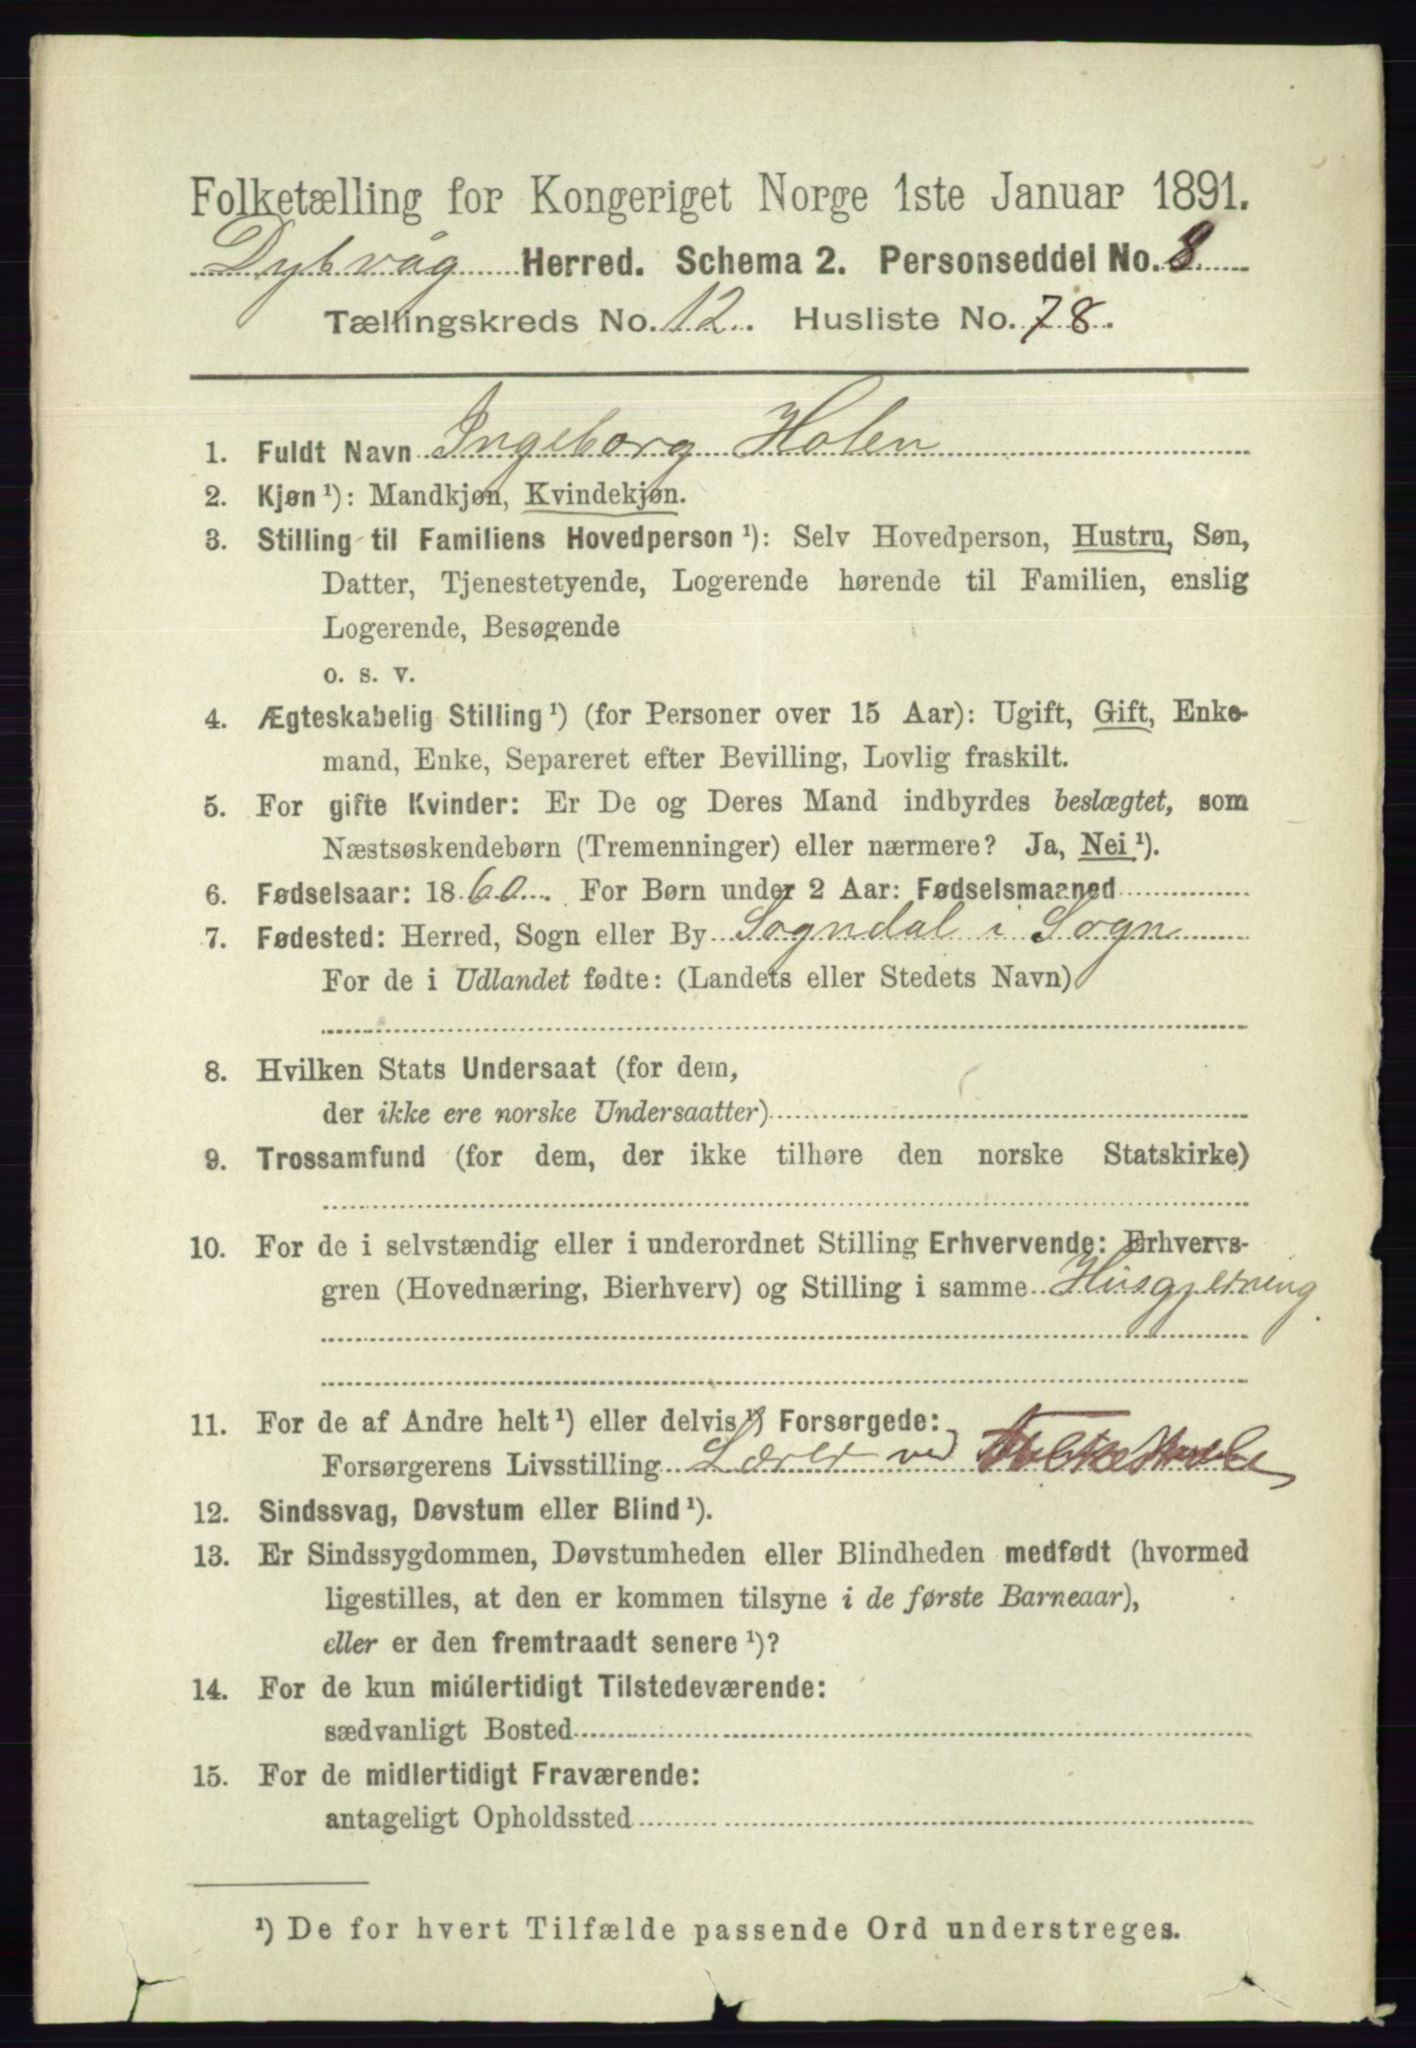 Folketælling for Kongeriget Norge 1ste Januar 1891.
Dybvåg Herred. Schema 2. Personseddel No. 8
Tællingskreds No. 12. Husliste No. 78.
1. Fuldt Navn Ingeborg Holen
2. Kjøn ¹): Mandkjøn, Kvindekjøn.
3. Stilling til Familiens Hovedperson ¹): Selv Hovedperson, Hustru, Søn,
Datter, Tjenestetyende, Logerende hørende til Familien, enslig
Logerende, Besøgende
o. s. v.
4. Ægteskabelig Stilling ¹) (for Personer over 15 Aar): Ugift, Gift, Enke-
mand, Enke, Separeret efter Bevilling, Lovlig fraskilt.
5. For gifte Kvinder: Er De og Deres Mand indbyrdes beslægtet, som
Næstsøskendebørn (Tremenninger) eller nærmere? Ja, Nei ¹).
6. Fødselsaar: 1860. For Børn under 2 Aar: Fødselsmaaned
7. Fødested: Herred, Sogn eller By Sogndal i Sogn
For de i Udlandet fødte: (Landets eller Stedets Navn)
8. Hvilken Stats Undersaat (for dem,
der ikke ere norske Undersaatter)
9. Trossamfund (for dem, der ikke tilhøre den norske Statskirke)
10. For de i selvstændig eller i underordnet Stilling Erhvervende: Erhvervs-
gren (Hovednæring, Bierhverv) og Stilling i samme Husgjerning.
11. For de af Andre helt ¹) eller delvis ¹) Forsørgede:
Forsørgerens Livsstilling Lærer ved Folkeskole
12. Sindssvag, Døvstum eller Blind ¹).
13. Er Sindssygdommen, Døvstumheden eller Blindheden medfødt (hvormed
ligestilles, at den er kommen tilsyne i de første Barneaar),
eller er den fremtraadt senere ¹)?
14. For de kun midlertidigt Tilstedeværende:
sædvanligt Bosted
15. For de midlertidigt Fraværende:
antageligt Opholdssted
¹) De for hvert Tilfælde passende Ord understreges.